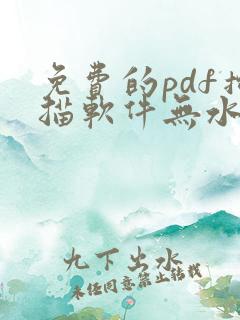 免費的pdf掃
描軟件無水
九下出水
未任同意禁止轉載